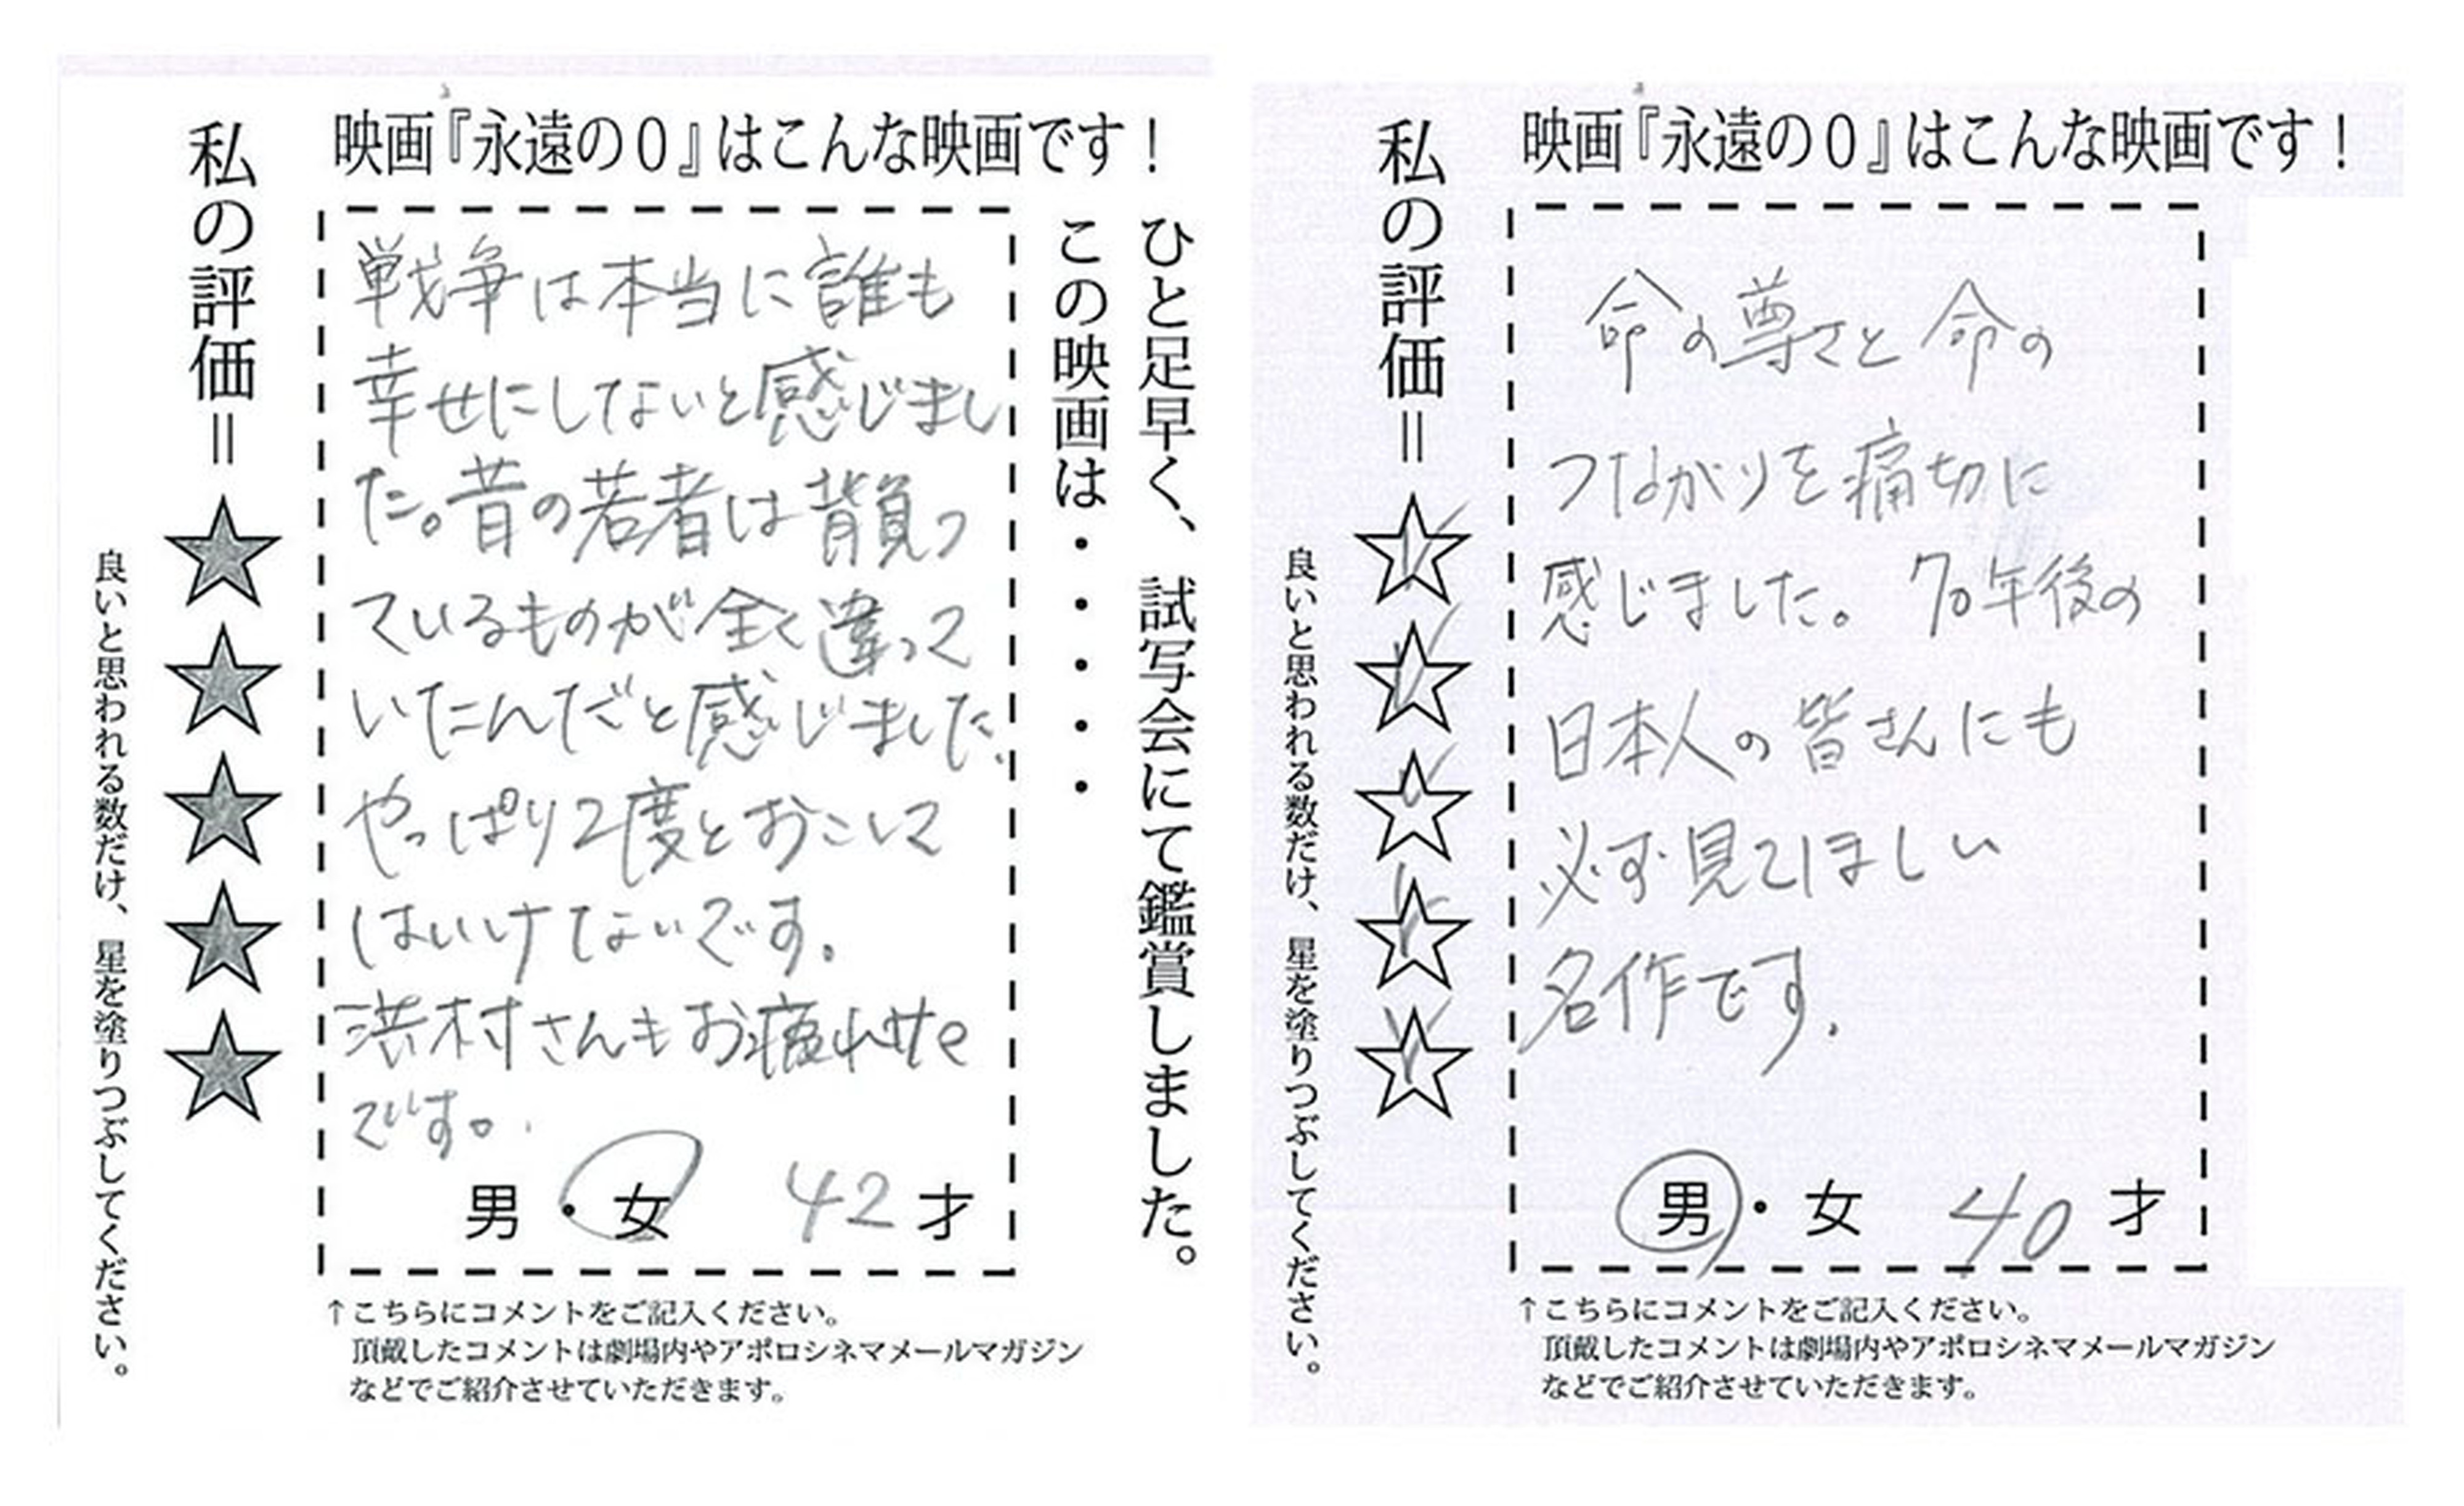 映画『永遠の0』はこんな映画です！
ひと足早く、試写会にて鑑賞しました。
この映画は・・・・・
戦争は本当に誰も
幸せにしないと感じまし
た。昔の若者は背負っ
ているものが全く違って
いたんだと感じました、
やっぱり2度とおこして
はいけないです。
浜村さんもお疲れサマ
です。
男・女 42才
↑こちらにコメントをご記入ください。
頂戴したコメントは劇場内やアポロシネマメールマガジン
などでご紹介させていただきます。
私の評価＝★★★★★
良いと思われる数だけ、星を塗りつぶしてください。
映画『永遠の0』はこんな映画です！
命の尊さと命の
つながりを痛切に
感じました。70年後の
日本人の皆さんにも
必ず見てほしい
名作です。
男・女 40才
↑こちらにコメントをご記入ください。
頂戴したコメントは劇場内やアポロシネマメールマガジン
などでご紹介させていただきます。
私の評価＝☆☆☆☆☆
良いと思われる数だけ、星を塗りつぶしてください。